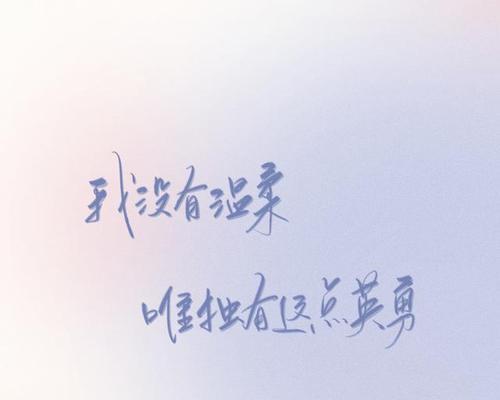 我没有温柔
唯独有这点英勇